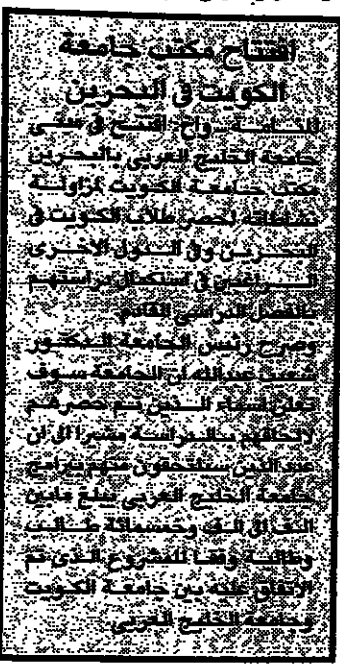 افتتاح مكتب جامعة
الكويت في البحرين
المنامة ـ واخ ـ افتتح في مبنى
جامعة الخليج العربي بالبحرين
مكتب جامعة الكويت لمزاولة
نشاطاته لحصر طلاب الكويت في
البحرين وفي الدول الاخرى
الراغبين في استكمال دراستهم
بالفصل الدراسي القادم
وصرح رئيس الجامعة الدكتور
شعيب عبدالله ان الجامعة سوف
تعلن اسماء الذين تم حصرهم
لالحاقهم بالدراسة مشيرا الى ان
عدد الذين سيلتحقون منهم ببرامج
جامعة الخليج العربي يبلغ مابين
الف الى الف وخمسمائة طالب
وطالبة وفقا للمشروع الذي تم
الاتفاق عليه بين جامعة الكويت
وجامعة الخليج العربي